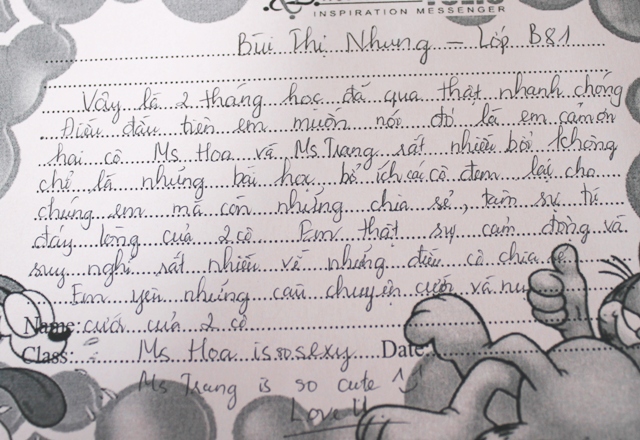 INSPIRATION MESSENGER
Bùi Thị Nhung – Lớp B81
Vậy là 2 tháng học đã qua thật nhanh chóng
Điều đầu tiên em muốn nói đó là em cảm ơn
hai cô Ms Hoa và Ms Trang rất nhiều bởi không
chỉ là những bài học bổ ích các cô đem lại cho
chúng em mà còn những chia sẻ, tâm sự từ
đáy lòng của 2 cô. Em thật sự cảm động và
suy nghĩ rất nhiều về những điều cô chia sẻ.
Em yêu những câu chuyện cười và nụ
Name: cười của 2 cô
Class: Ms Hoa is so sexy Date:
Ms Trang is so cute ^
Love U